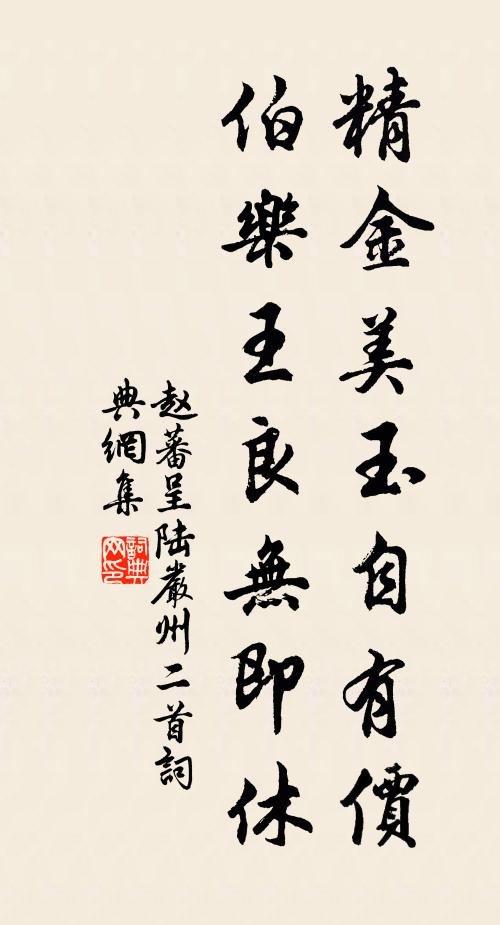 精金美玉自有價
伯樂王良無即休
赵蕃呈陆嚴州二首詞
典網集
詞典
网印